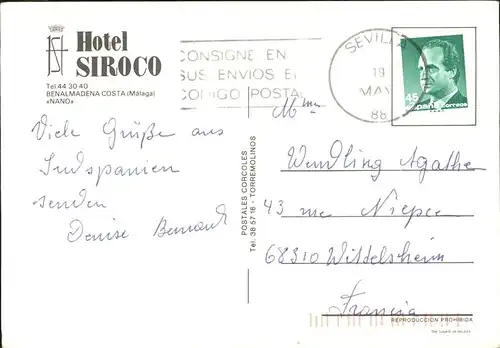 Hotel
SIROCO
Tel. 44 30 40
BENALMADENA COSTA (Málaga)
«NANO»
CONSIGNE EN
SUS ENVIOS EL
CODIGO POSTAL
SEVILLA
19
MAY
88
45
España Correos
Viele Grüße aus
Südspanien
senden
Denise Bernard
POSTALES CORCOLES
Tel. 38 57 16 - TORREMOLINOS
Mme
Wendling Agathe
43 rue Niepce
68310 Wittelsheim
Francia
REPRODUCCION PROHIBIDA